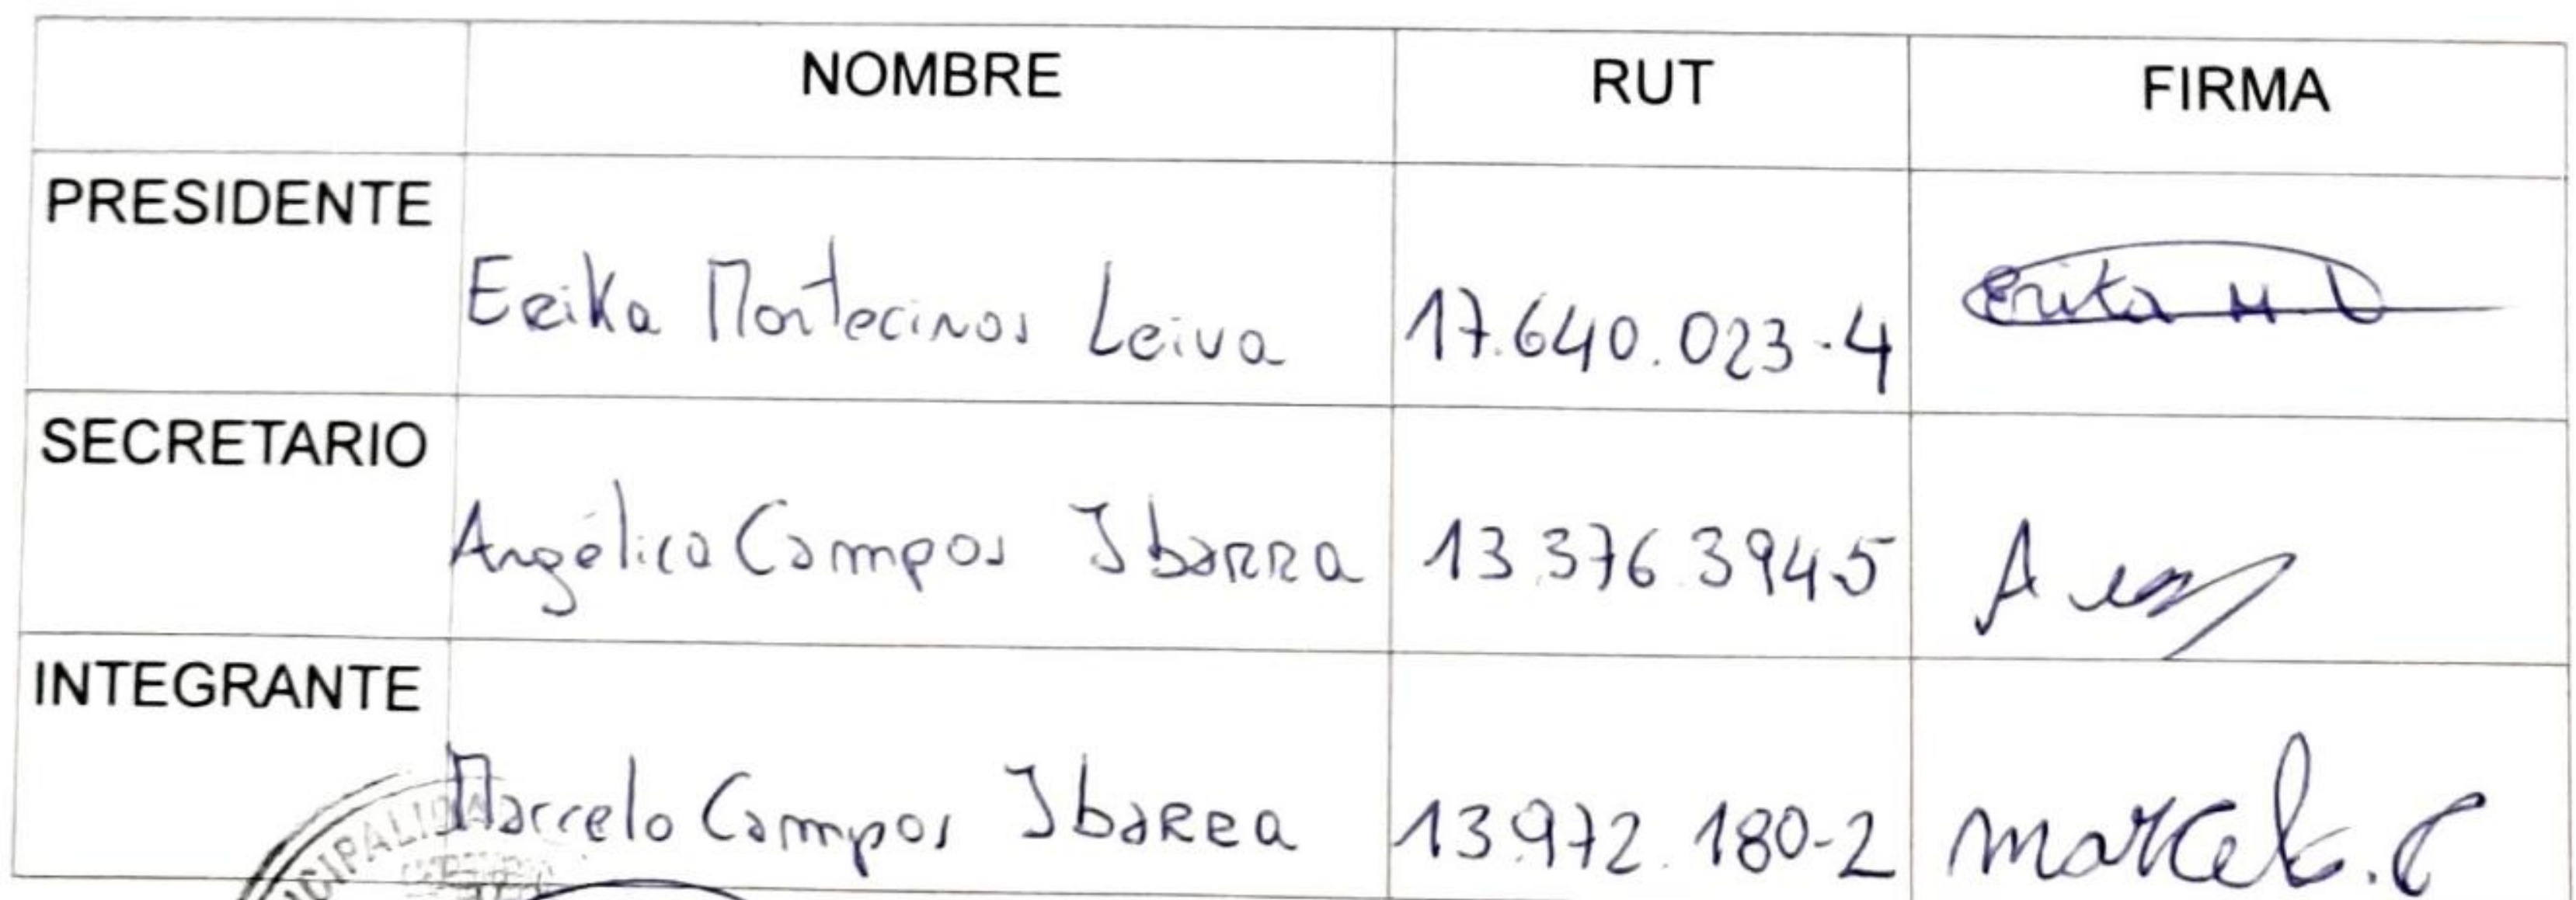 NOMBRE RUT FIRMA
PRESIDENTE
Erika Montecinos Leiva 17.640.023-4 Erika M L
SECRETARIO
Angélica Campos Ibarra 13.376.394-5 A
INTEGRANTE
Marcelo Campos Ibarra 13.972.180-2 Marcelo.C
ICIPALIDA